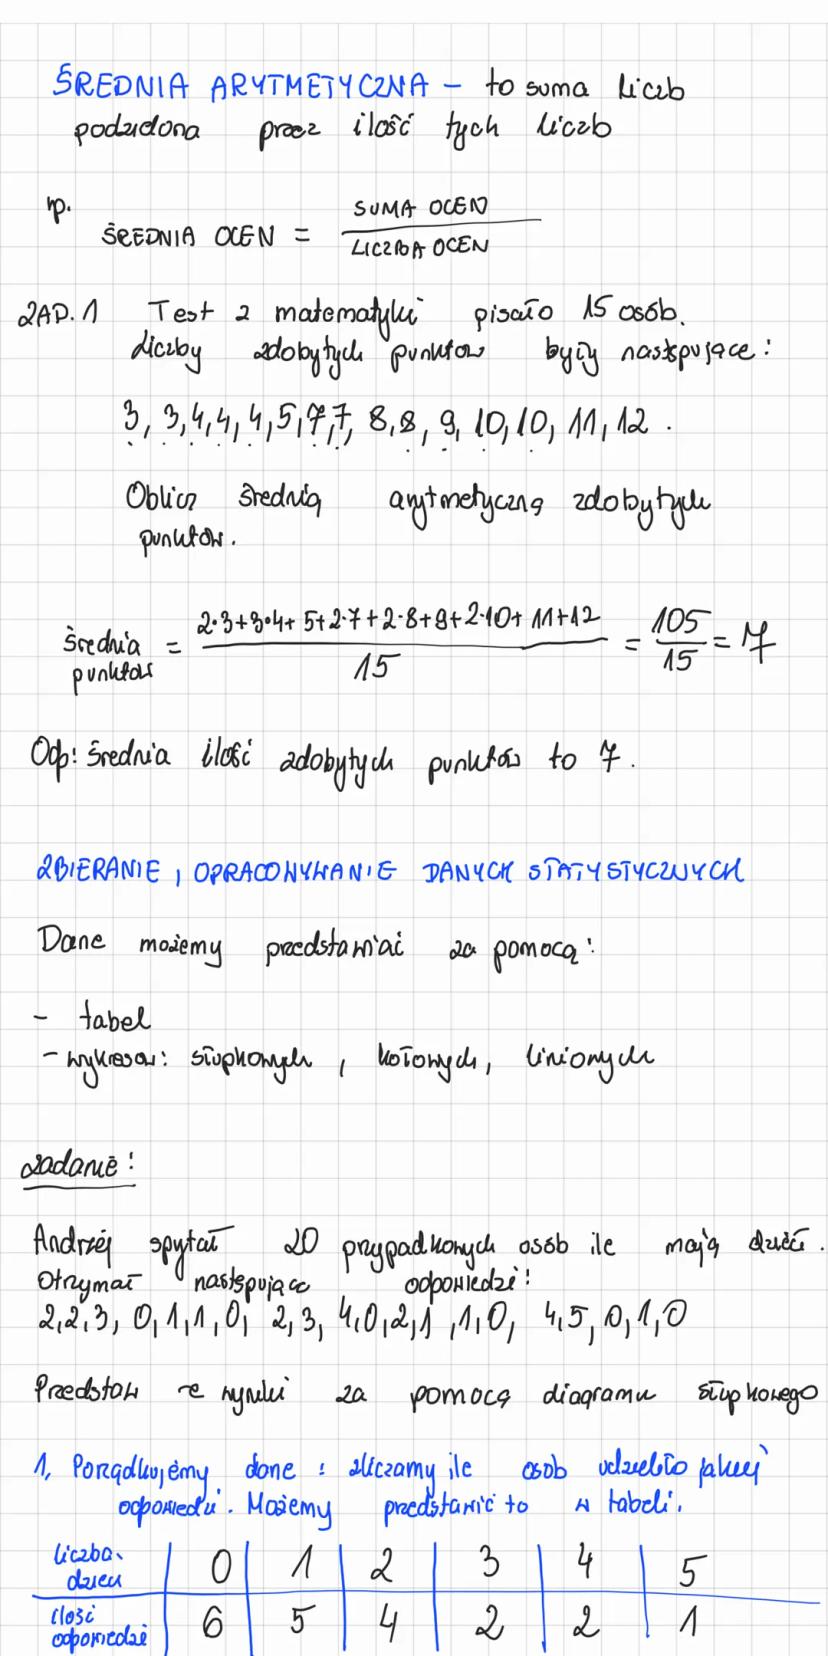 ŚREDNIA ARYTMETYCZNA – to suma liczb
podzielona przez ilość tych liczb
np.
ŚREDNIA OCEN = SUMA OCEN
LICZBA OCEN
ZAD. 1 Test z matematyki pisało 15 osób.
Liczby zdobytych punktów były następujące:
3, 3, 4, 4, 4, 5, 7, 7, 8, 8, 9, 10, 10, 11, 12.
Oblicz średnią arytmetyczną zdobytych
punktów.
średnia punktów = 2·3+3·4+5+2·7+2·8+9+2·10+11+12 = 105 = 7
15 15
Odp: średnia ilość zdobytych punktów to 7.
ZBIERANIE, OPRACOWYWANIE DANYCH STATYSTYCZNYCH
Dane możemy przedstawiać za pomocą:
- tabel
- wykresów: słupkowych, kołowych, liniowych
zadanie:
Andrzej spytał 20 przypadkowych osób ile mają dzieci.
Otrzymał następujące odpowiedzi:
2, 2, 3, 0, 1, 1, 0, 2, 3, 4, 0, 2, 1, 1, 0, 4, 5, 0, 1, 0
Przedstaw te wyniki za pomocą diagramu słupkowego
1, Porządkujemy dane: zliczamy ile osób udzieliło jakiej
odpowiedzi. Możemy przedstawić to w tabeli.
liczba dzieci 0 1 2 3 4 5
ilość odpowiedzi 6 5 4 2 2 1